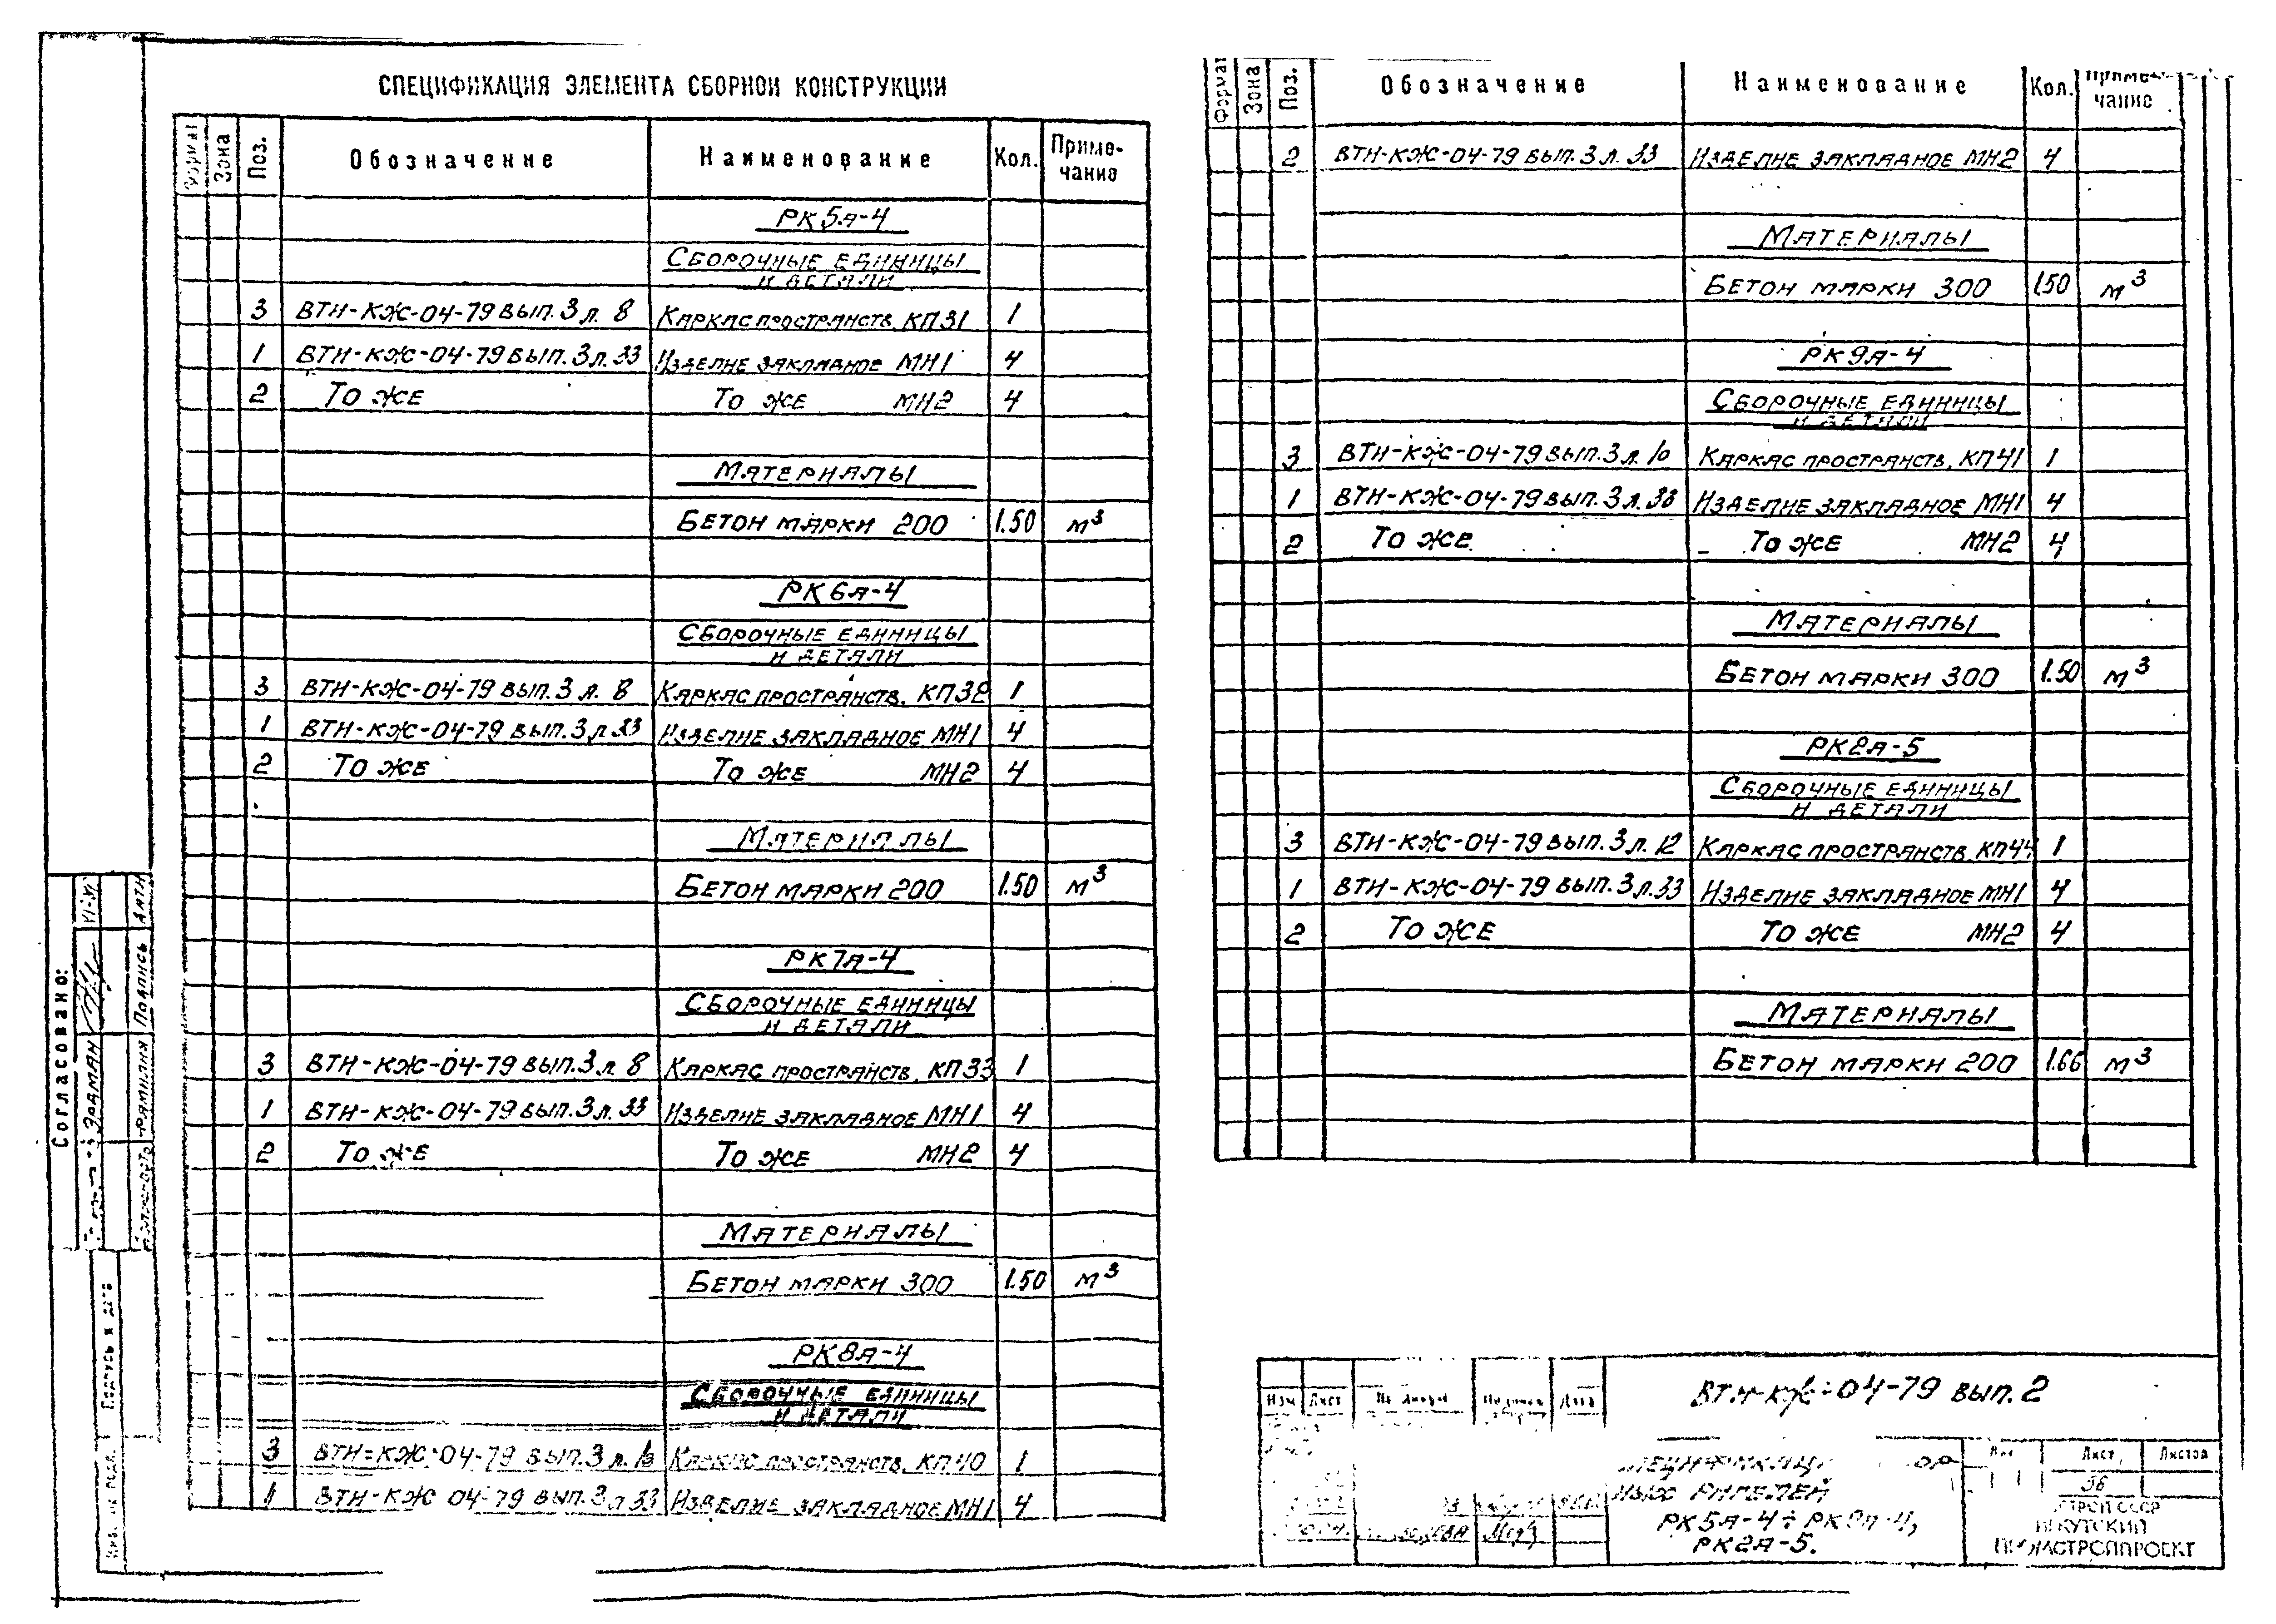 СПЕЦИФИКАЦИЯ ЭЛЕМЕНТА СБОРНОЙ КОНСТРУКЦИИ
Формат Зона Поз. Обозначение Наименование Кол. Приме-
чание
РК5А-4
СБОРОЧНЫЕ ЕДИНИЦЫ
И ДЕТАЛИ
3 ВТИ-КЖ-04-79 ВЫП.3 Л. 8 КАРКАС ПРОСТРАНСТВ. КП31 1
1 ВТИ-КЖ-04-79 ВЫП.3 Л.33 ИЗДЕЛИЕ ЗАКЛАДНОЕ МН1 4
2 ТО ЖЕ ТО ЖЕ МН2 4
МАТЕРИАЛЫ
БЕТОН МАРКИ 200 1.50 М3
РК6А-4
СБОРОЧНЫЕ ЕДИНИЦЫ
И ДЕТАЛИ
3 ВТИ-КЖ-04-79 ВЫП.3 Л. 8 КАРКАС ПРОСТРАНСТВ. КП32 1
1 ВТИ-КЖ-04-79 ВЫП.3 Л 33 ИЗДЕЛИЕ ЗАКЛАДНОЕ МН1 4
2 ТО ЖЕ ТО ЖЕ МН2 4
МАТЕРИАЛЫ
БЕТОН МАРКИ 200 1.50 М3
РК7А-4
СБОРОЧНЫЕ ЕДИНИЦЫ
И ДЕТАЛИ
3 ВТИ-КЖ-04-79 ВЫП.3 Л. 8 КАРКАС ПРОСТРАНСТВ. КП33 1
1 ВТИ-КЖ-04-79 ВЫП.3 Л.33 ИЗДЕЛИЕ ЗАКЛАДНОЕ МН1 4
2 ТО ЖЕ ТО ЖЕ МН2 4
МАТЕРИАЛЫ
БЕТОН МАРКИ 300 1.50 М3
РК8А-4
СБОРОЧНЫЕ ЕДИНИЦЫ
И ДЕТАЛИ
3 ВТИ-КЖ-04-79 ВЫП.3 Л. 10 КАРКАС ПРОСТРАНСТВ. КП40 1
1 ВТИ-КЖ 04-79 ВЫП.3 Л 33 ИЗДЕЛИЕ ЗАКЛАДНОЕ МН1 4
Формат Зона Поз. Обозначение Наименование Кол. Приме-
чание
2 ВТИ-КЖ-04-79 ВЫП.3 Л. 33 ИЗДЕЛИЕ ЗАКЛАДНОЕ МН2 4
МАТЕРИАЛЫ
БЕТОН МАРКИ 300 1.50 М3
РК9А-4
СБОРОЧНЫЕ ЕДИНИЦЫ
И ДЕТАЛИ
3 ВТИ-КЖ-04-79 ВЫП.3 Л. 10 КАРКАС ПРОСТРАНСТВ. КП41 1
1 ВТИ-КЖ-04-79 ВЫП.3 Л. 33 ИЗДЕЛИЕ ЗАКЛАДНОЕ МН1 4
2 ТО ЖЕ ТО ЖЕ МН2 4
МАТЕРИАЛЫ
БЕТОН МАРКИ 300 1.50 М3
РК2А-5
СБОРОЧНЫЕ ЕДИНИЦЫ
И ДЕТАЛИ
3 ВТИ-КЖ-04-79 ВЫП.3 Л. 12 КАРКАС ПРОСТРАНСТВ КП44 1
1 ВТИ-КЖ-04-79 ВЫП.3 Л.33 ИЗДЕЛИЕ ЗАКЛАДНОЕ МН1 4
2 ТО ЖЕ ТО ЖЕ МН2 4
МАТЕРИАЛЫ
БЕТОН МАРКИ 200 1.66 М3
Согласовано:
ЭРДМАН
ФАМИЛИЯ ПОДПИСЬ ДАТА
Подпись и дата
Изм Лист Подпись Дата
ВТИ-КЖ-04-79 ВЫП.2
РИГЕЛЕЙ
РК5А-4÷РК9А-4,
РК2А-5.
Лист Листов
36
ПРОМСТРОЙПРОЕКТ